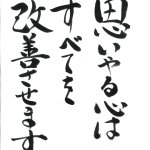 思いやる心は
すべてを
改善させます